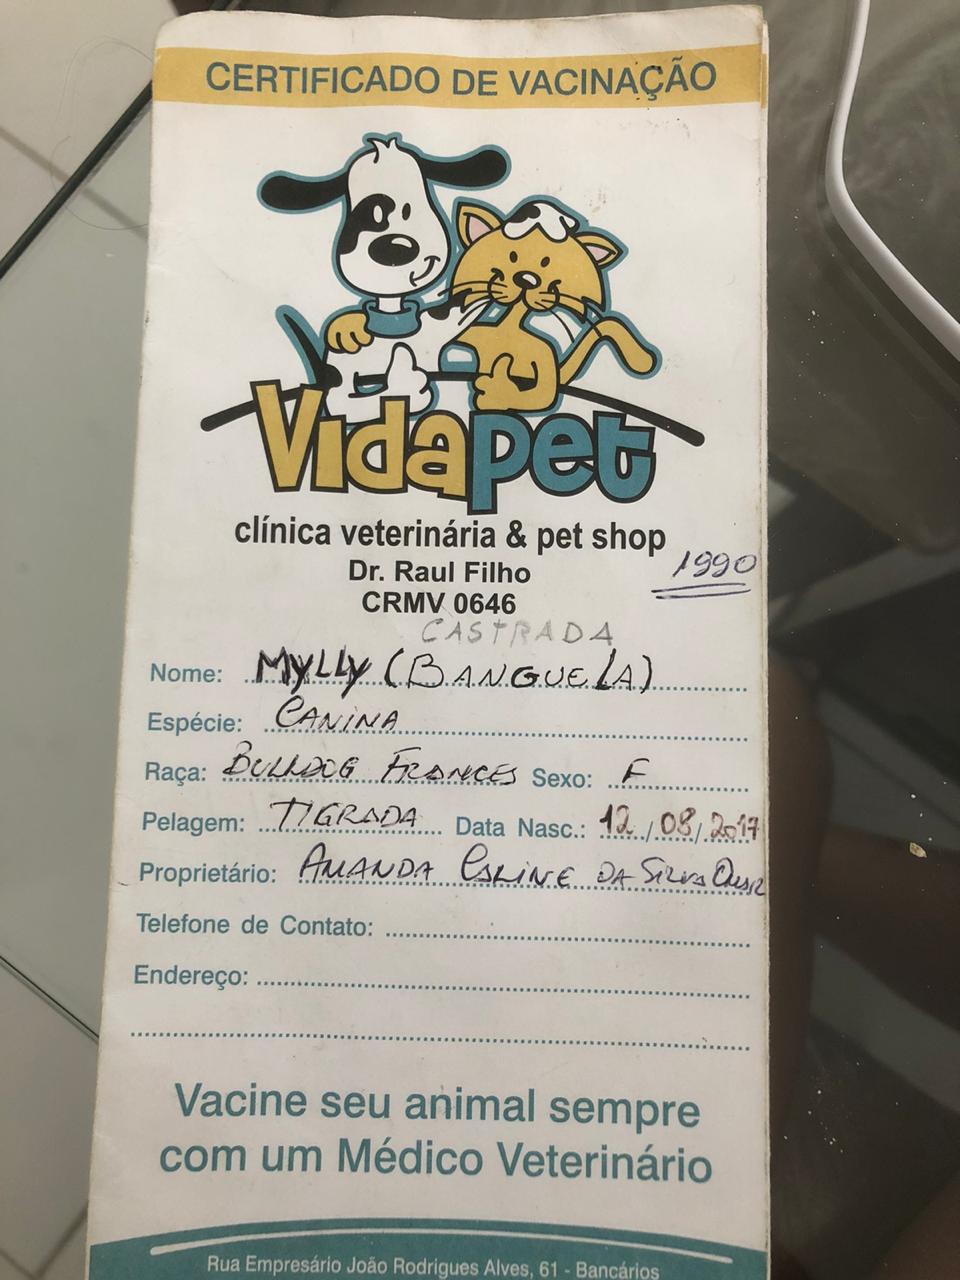 CERTIFICADO DE VACINAÇÃO
Vidapet
clínica veterinária & pet shop
Dr. Raul Filho
1990
CRMV 0646
CASTRADA
Nome: MYLLY (BANGUELA)
Espécie: CANINA
Raça: BULLDOG FRANCES Sexo: F
Pelagem: TIGRADA Data Nasc.: 12/08/2017
Proprietário: AMANDA CARINE DA SILVA
Telefone de Contato:
Endereço:
Vacine seu animal sempre
com um Médico Veterinário
Rua Empresário João Rodrigues Alves, 61 - Bancários